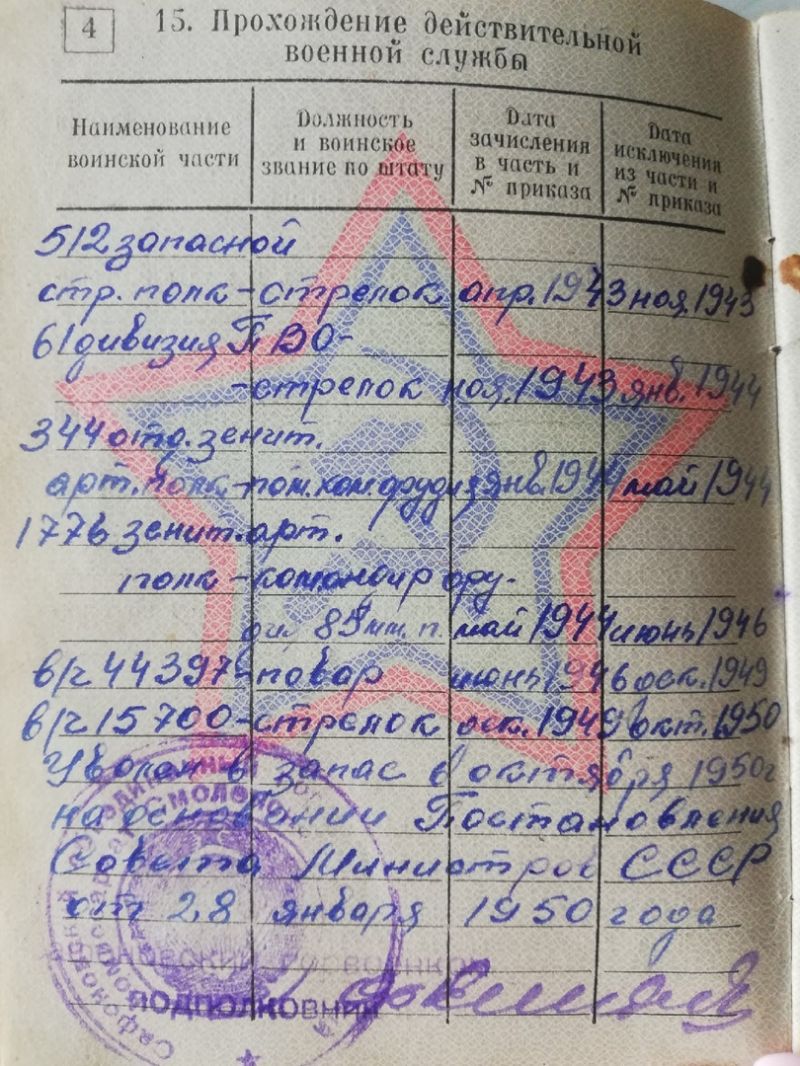 4
15. Прохождение действительной
военной службы
Наименование
воинской части
Должность
и воинское
звание по штату
Дата
зачисления
в часть и
№ приказа
Дата
исключения
из части и
№ приказа
512 запасной
стр. полк - стрелок апр. 1943 ноя. 1943
61 дивизия ПВО -
- стрелок ноя. 1943 янв. 1944
344 отд. зенит.
арт. полк - пом. ком. орудия янв. 1944 май 1944
1776 зенит. арт.
полк - командир ору-
дия 85 мм. п. май 1944 июнь 1946
в/ч 44397 - повар июнь 1946 дек. 1949
в/ч 15700 - стрелок дек. 1949 окт. 1950
Уволен в запас в октября 1950г
на основании Постановления
Совета Министров СССР
от 28 января 1950 года
Сафоновский горвоенком
подполковник